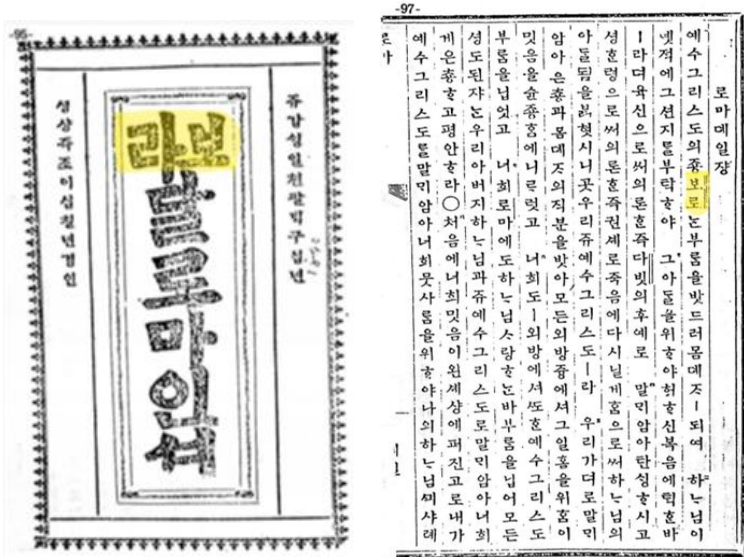 -95-
쥬강싱일쳔팔빅구십년
보라달로마인셔
셩샹즉조이십칠년경인
-97-
로마데일쟝
예수그리스도의죵보로ᄂᆞᆫ부ᄅᆞᆷ을밧드러몸뎨ᄌᆞㅣ되여 하ᄂᆞ님이
녯젹에그션지를부탁ᄒᆞ야 그아ᄃᆞᆯ을위ᄒᆞ야허ᄒᆞ신복음에턱ᄒᆞᆫ바
ㅣ라뎌육신으로써의론ᄒᆞᆫ즉다빗의후예로 말믹암아탄싱ᄒᆞ시고
셩혼령으로써의론ᄒᆞᆫ즉권셰로죽음에다시닐게홈으로써하ᄂᆞ님의
아ᄃᆞᆯ됨을붉혓시니곳우리쥬예수그리스도ㅣ라 우리가뎌로말믹
암아은춍과몸뎨ᄌᆞ의직분을밧아모든외방즁에셔그일홈을위홈이
밋음을슌죵홈에니르럿고 너희도ㅣ외방에셔ᄯᅩᄒᆞᆫ예수그리스도
부룸을닙엇고 너희로마에도하ᄂᆞ님ᄉᆞ랑ᄒᆞᄂᆞᆫ바부룸을닙어모든
셩도된쟈ᄂᆞᆫ우리아버지하ᄂᆞ님과쥬예수그리스도로말믹암아너희
게은춍ᄒᆞ고평안ᄒᆞ라○처음에너희밋음이왼셰샹에퍼진고로내가
예수그리스도를말믹암아너희뭇사ᄅᆞᆷ을위ᄒᆞ야나의하ᄂᆞ님ᄭᅴ샤례